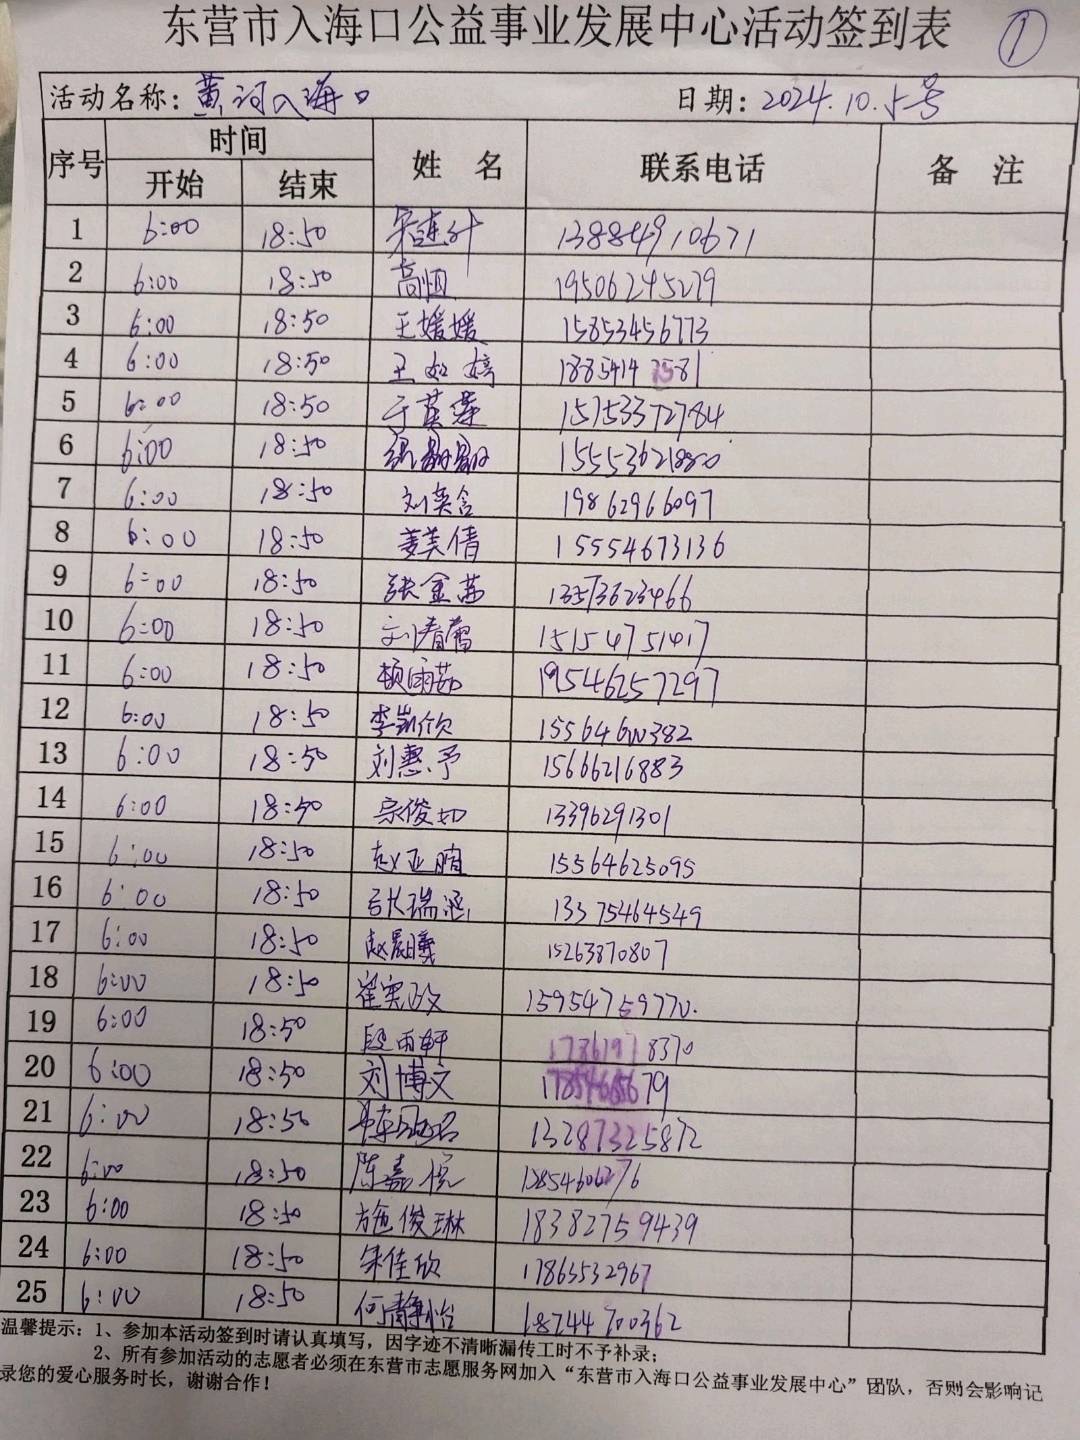 东营市入海口公益事业发展中心活动签到表 ①
活动名称：黄河入海口 日期：2024.10.5号
序号 时间 姓 名 联系电话 备 注
开始 结束
1 6:00 18:50 宋连叶 13884910671
2 6:00 18:50 高恒 19506245279
3 6:00 18:50 王媛媛 15853456773
4 6:00 18:50 王如婷 18854147581
5 6:00 18:50 于英莲 15753372784
6 6:00 18:50 15553621880
7 6:00 18:50 刘英含 19862966097
8 6:00 18:50 姜美倩 15554673136
9 6:00 18:50 张金茜 13573623466
10 6:00 18:50 刘春蕾 15154751417
11 6:00 18:50 顾雨茹 19546257297
12 6:00 18:50 李凯欣
13 6:00 18:50 刘惠予 15666216883
14 6:00 18:50 宗俊如 13396291301
15 6:00 18:50 赵亚晴 15564625095
16 6:00 18:50 张瑞涵 13375464549
17 6:00 18:50 赵晨曦 15263870807
18 6:00 18:50 崔宪政 15954759770.
19 6:00 18:50 段雨轩 17861978370
20 6:00 18:50 刘博文
21 6:00 18:50 13287325872
22 6:00 18:50 陈嘉悦
23 6:00 18:50 施俊琳 18382759439
24 6:00 18:50 朱佳欣 17863532967
25 6:00 18:50 何静怡 18744700362
温馨提示：1、参加本活动签到时请认真填写，因字迹不清晰漏传工时不予补录；
2、所有参加活动的志愿者必须在东营市志愿服务网加入“东营市入海口公益事业发展中心”团队，否则会影响记
录您的爱心服务时长，谢谢合作！